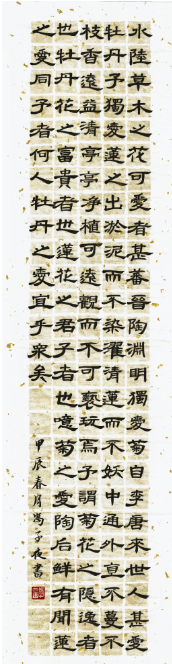 水陸草木之花可愛者甚蕃晉陶淵明獨愛菊自李唐來世人甚愛
牡丹予獨愛蓮之出於泥而不染濯清蓮而不妖中通外直不蔓不
枝香遠益清亭亭净植可遠觀而不可褻玩焉予謂菊花之隱逸者
也牡丹花之富貴者也蓮花之君子者也噫菊之愛陶后鮮有聞蓮
之愛同予者何人牡丹之愛宜乎衆矣
甲辰春月馮子夜書